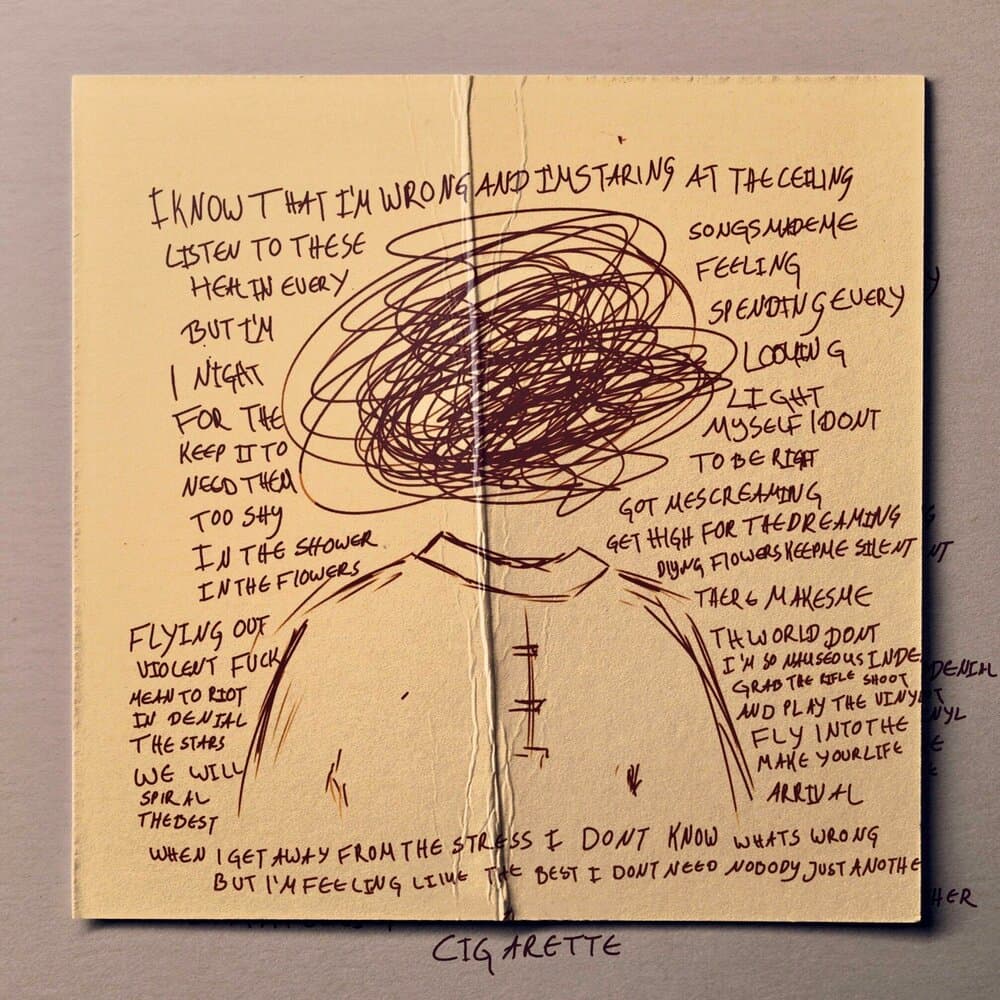 I KNOW THAT I'M WRONG AND I'M STARING AT THE CEILING
LISTEN TO THESE SONGS MADE ME
HEAL IN EVERY FEELING
BUT I'M SPENDING EVERY
I NIGHT LOOKING
FOR THE LIGHT
KEEP IT TO MYSELF I DONT
NEED THEM TO BE RIGHT
TOO SHY GOT ME SCREAMING
IN THE SHOWER GET HIGH FOR THE DREAMING
IN THE FLOWERS DIYNG FLOWERS KEEP ME SILENT
FLYING OUT THERE MAKES ME
VIOLENT FUCK TH WORLD DONT
MEAN TO RIOT I'M SO NAUSEOUS IN DENIAL
IN DENIAL GRAB THE RIFLE SHOOT
THE STARS AND PLAY THE VINYL
WE WILL FLY INTO THE
SPIRAL MAKE YOUR LIFE
THE BEST ARRIVAL
WHEN I GET AWAY FROM THE STRESS I DONT KNOW WHATS WRONG
BUT I'M FEELING LIKE THE BEST I DONT NEED NOBODY JUST ANOTHER
CIGARETTE